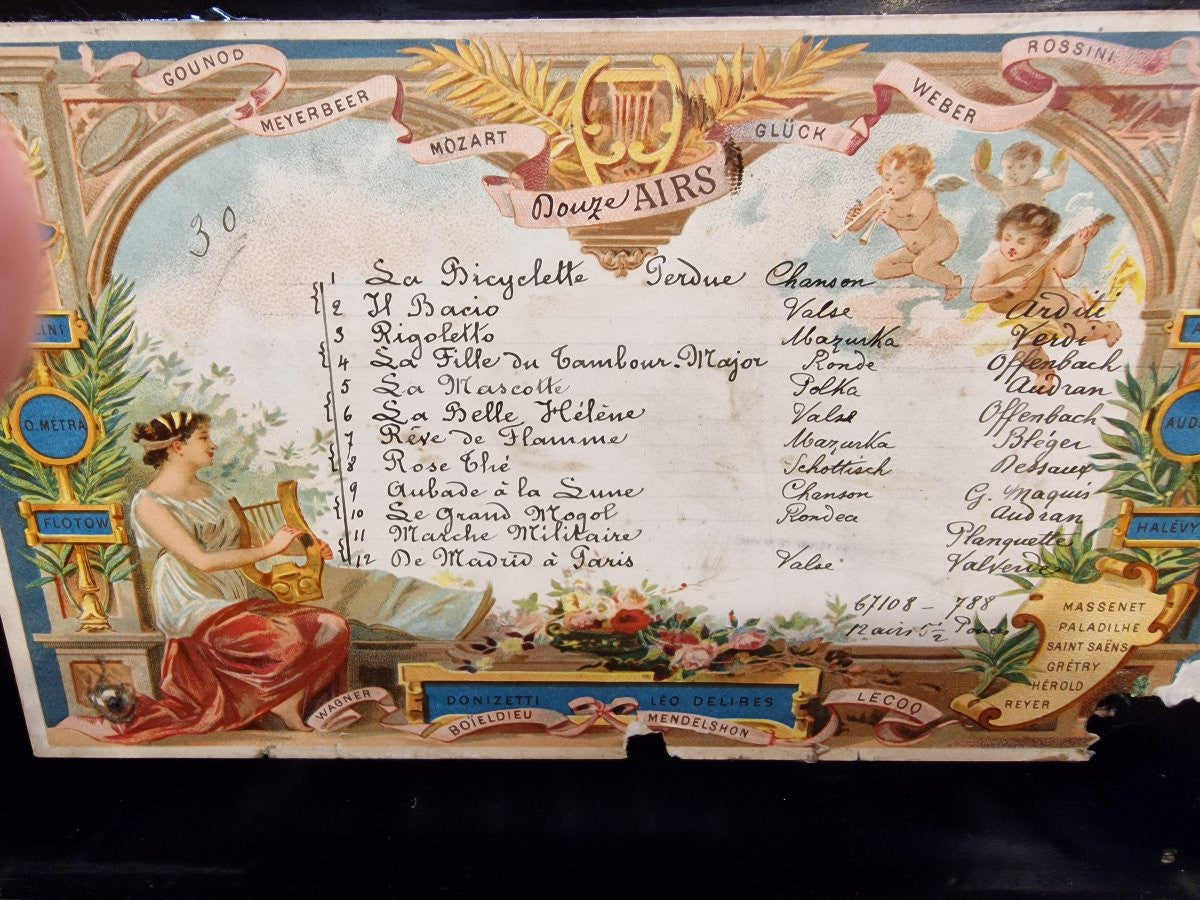 GOUNOD
MEYERBEER
MOZART
GLÜCK
WEBER
ROSSINI
Douze AIRS
30
1 La Bicyclette Perdue Chanson
2 Il Bacio Valse Arditi
3 Rigoletto Mazurka Verdi
4 La Fille du Tambour-Major Ronde Offenbach
5 La Mascotte Polka Audran
6 La Belle Hélène Valse Offenbach
7 Rêve de Flamme Mazurka Bléger
8 Rose Thé Schottisch Dessaux
9 Aubade à la Lune Chanson G. Maquis
10 Le Grand Mogol Rondea Audran
11 Marche Militaire Planquette
12 De Madrid à Paris Valse Valverde
67108 - 788
12 airs 5 1/2 Pouces
LINI
O.MÉTRA
FLOTOW
AUD
HALÉVY
MASSENET
PALADILHE
SAINT SAËNS
GRÉTRY
HÉROLD
REYER
WAGNER
DONIZETTI LÉO DELIBES
BOÏELDIEU MENDELSHON
LECOQ